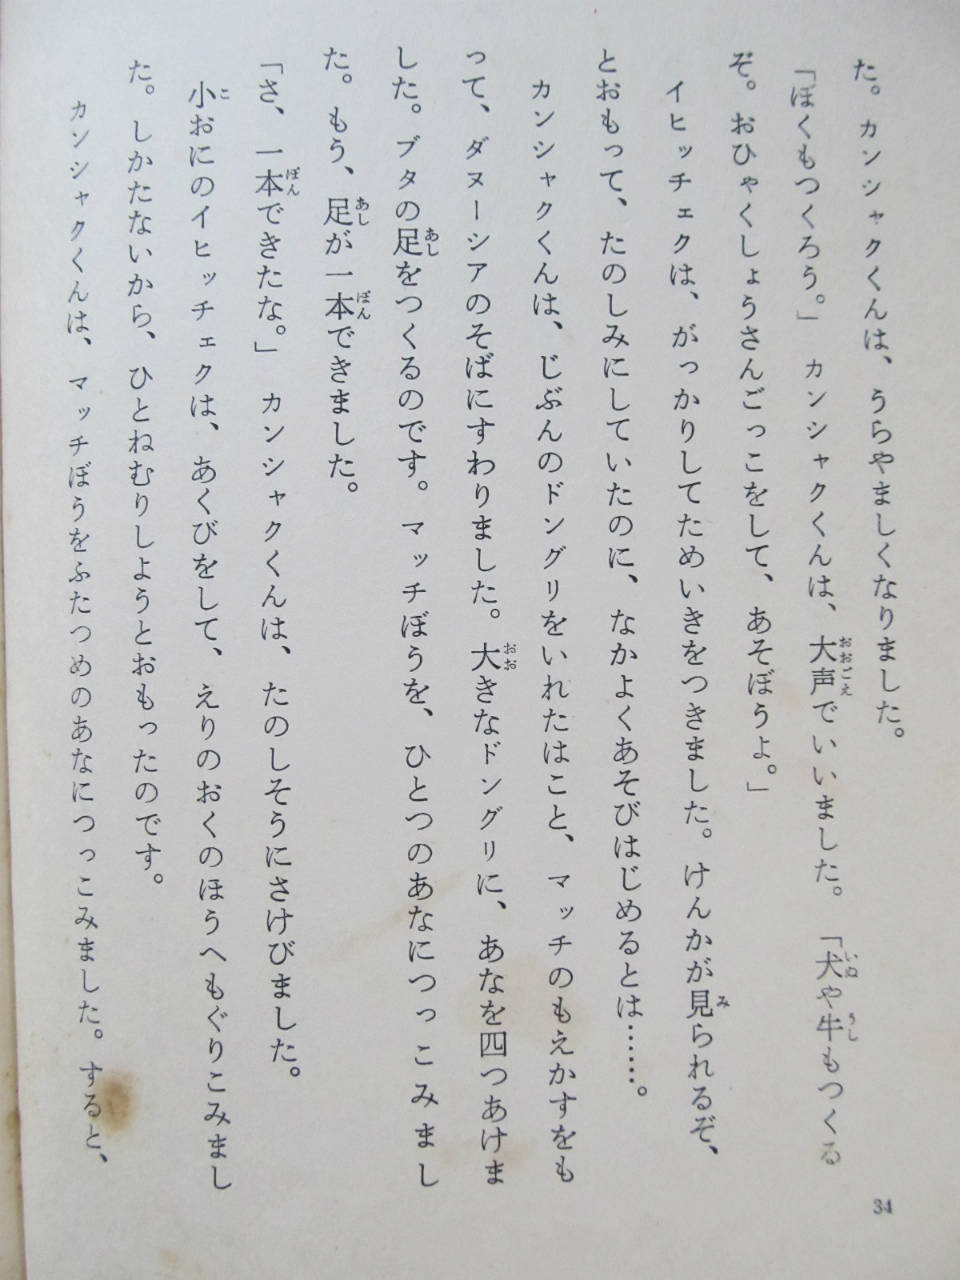 た。カンシャクくんは、うらやましくなりました。
「ぼくもつくろう。」　カンシャクくんは、大声でいいました。　「犬や牛もつくる
ぞ。おひゃくしょうさんごっこをして、あそぼうよ。」
イヒッチェクは、がっかりしてためいきをつきました。けんかが見られるぞ、
とおもって、たのしみにしていたのに、なかよくあそびはじめるとは……。
カンシャクくんは、じぶんのドングリをいれたはこと、マッチのもえかすをも
って、ダヌーシアのそばにすわりました。大きなドングリに、あなを四つあけま
した。ブタの足をつくるのです。マッチぼうを、ひとつのあなにつっこみまし
た。もう、足が一本できました。
「さ、一本できたな。」　カンシャクくんは、たのしそうにさけびました。
小おにのイヒッチェクは、あくびをして、えりのおくのほうへもぐりこみまし
た。しかたないから、ひとねむりしようとおもったのです。
カンシャクくんは、マッチぼうをふたつめのあなにつっこみました。すると、
34